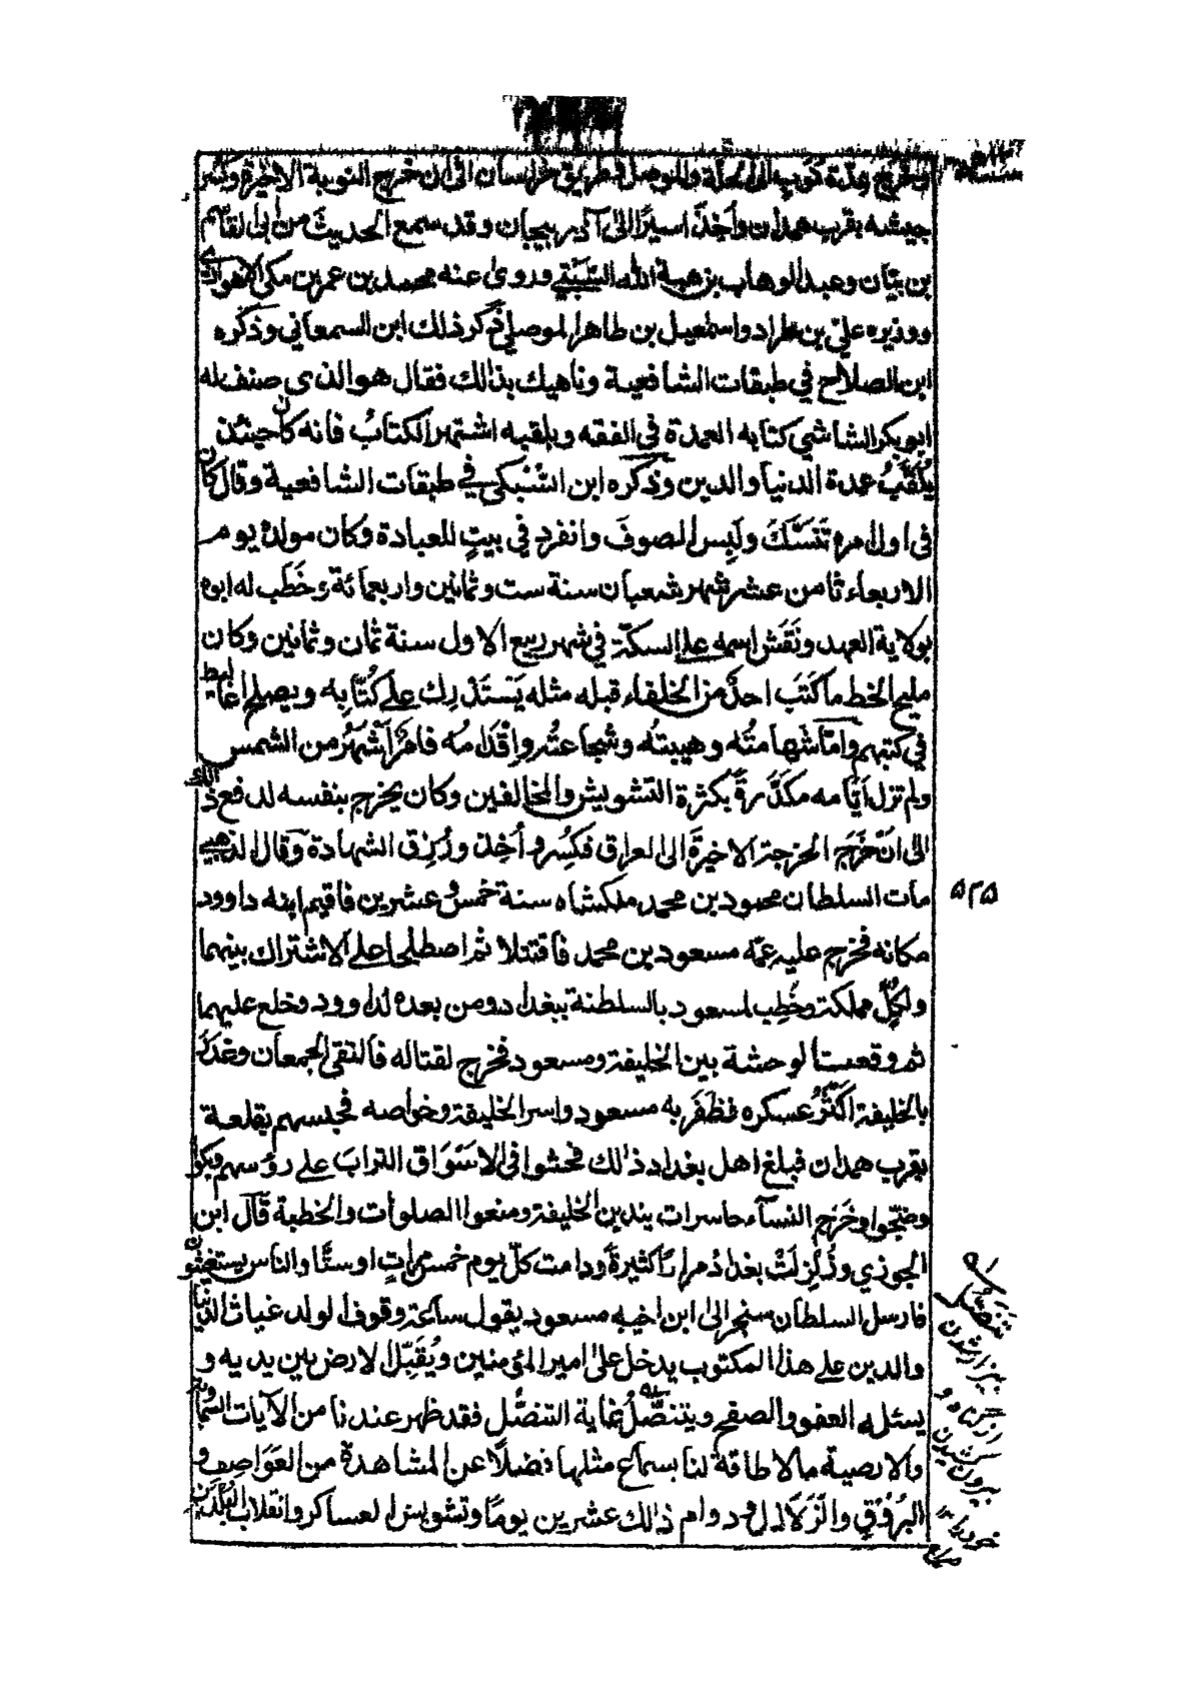 وخرج عدة نوب الى الحلة والموصل وطريق خراسان الى ان خرج النوبة الاخيرة وكسر
جيشه بقرب همدان واخذ اسيرًا الى آذربيجان وقد سمع الحديث من ابى القاسم
بن بيان وعبد الوهاب بن هبة الله السيبى وروى عنه محمد بن عمر بن مكى الاهوازى
ووزيره علىّ بن طراد واسمعيل بن طاهر الموصلي ذكر ذلك ابن السمعاني وذكره
ابن الصلاح في طبقات الشافعية وناهيك بذلك فقال هو الذى صنف له
ابو بكر الشاشي كتابه العمدة في الفقه وبلقبه اشتهر الكتابُ فانه كان حينئذ
يُلَقَّبُ عمدة الدنيا والدين وذكره ابن السُبكى في طبقات الشافعية وقال كان
فى اول امره تَنَسَّكَ ولَبِس الصوفَ وانفرد في بيتٍ للعبادة وكان مولده يوم
الاربعاء ثامن عشر شهر شعبان سنة ست وثمانين واربعمائة وخَطَب له ابوه
بولاية العهد ونَقَش اسمه على السكة في شهر ربيع الاول سنة ثمان وثمانين وكان
مليح الخط ما كَتَبَ احدٌ من الخلفاء قبله مثله يَستَدْرِك على كُتّابه ويصلح اغاليط
في كتبهم وامّا شهامتُه وهيبتُه وشجاعتُه واقْدامُه فامرٌ اَشْهَرُ من الشمس
ولم تزل ايّامه مكدَّرةً بكثرة التشويش والمخالفين وكان يخرج بنفسه لدفع ذلك
الى ان خَرَجَ الخرجة الاخيرة الى العراق فكُسِر واُخِذ ورُزِق الشهادة وقال الذهبي
مات السلطان محمود بن محمد ملكشاه سنة خمس وعشرين فاقيم ابنه داوود
۵۲۵
مكانه فخرج عليه عمّه مسعود بن محمد فاقتتلا ثم اصطلحا على الاشتراك بينهما
ولكُلٍّ مملكة وخُطِب لمسعود بالسلطنة ببغداد ومن بعده لداوود وخلع عليهما
ثم وقعت الوحشة بين الخليفة ومسعود فخرج لقتاله فالتقى الجمعان وغدر
بالخليفة اكثَرُ عسكره فظَفَر به مسعود واسر الخليفة وخواصه فحبسهم بقلعة
بقرب همدان فبلغ اهل بغداد ذلك فحثوا فى الاسَوَاق الترابَ على رؤسهم وبكوا
وضجّوا وخَرَج النسآء حاسرات يندبن الخليفة ومنعوا الصلوات والخطبة قال ابن
الجوزي وزُلزِلَتْ بغداد مرارًا كثيرةً ودامت كلّ يوم خمس مراتٍ او ستًّا والناس يستغيثون
فارسل السلطان سنجر الى ابن اخيه مسعود يقول ساعة وقوف الولد غياث الدنيا
والدين على هذا المكتوب يدخل على امير المؤمنين ويُقبِّل الارض بين يديه و
يسئله العفو والصفح ويتنصَّلُ غاية التنصُّل فقد ظهر عندنا من الآيات السماوية
والارضية ما لا طاقة لنا بسماع مثلها فضلاً عن المشاهدة من العَوَاصِف و
البُروُقِ والزَلازل ودوام ذلك عشرين يومًا وتشويش العساكر وانقلاب البلدان
تنصل